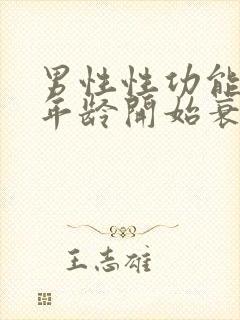 男性性功能
年龄開始衰
王志雄